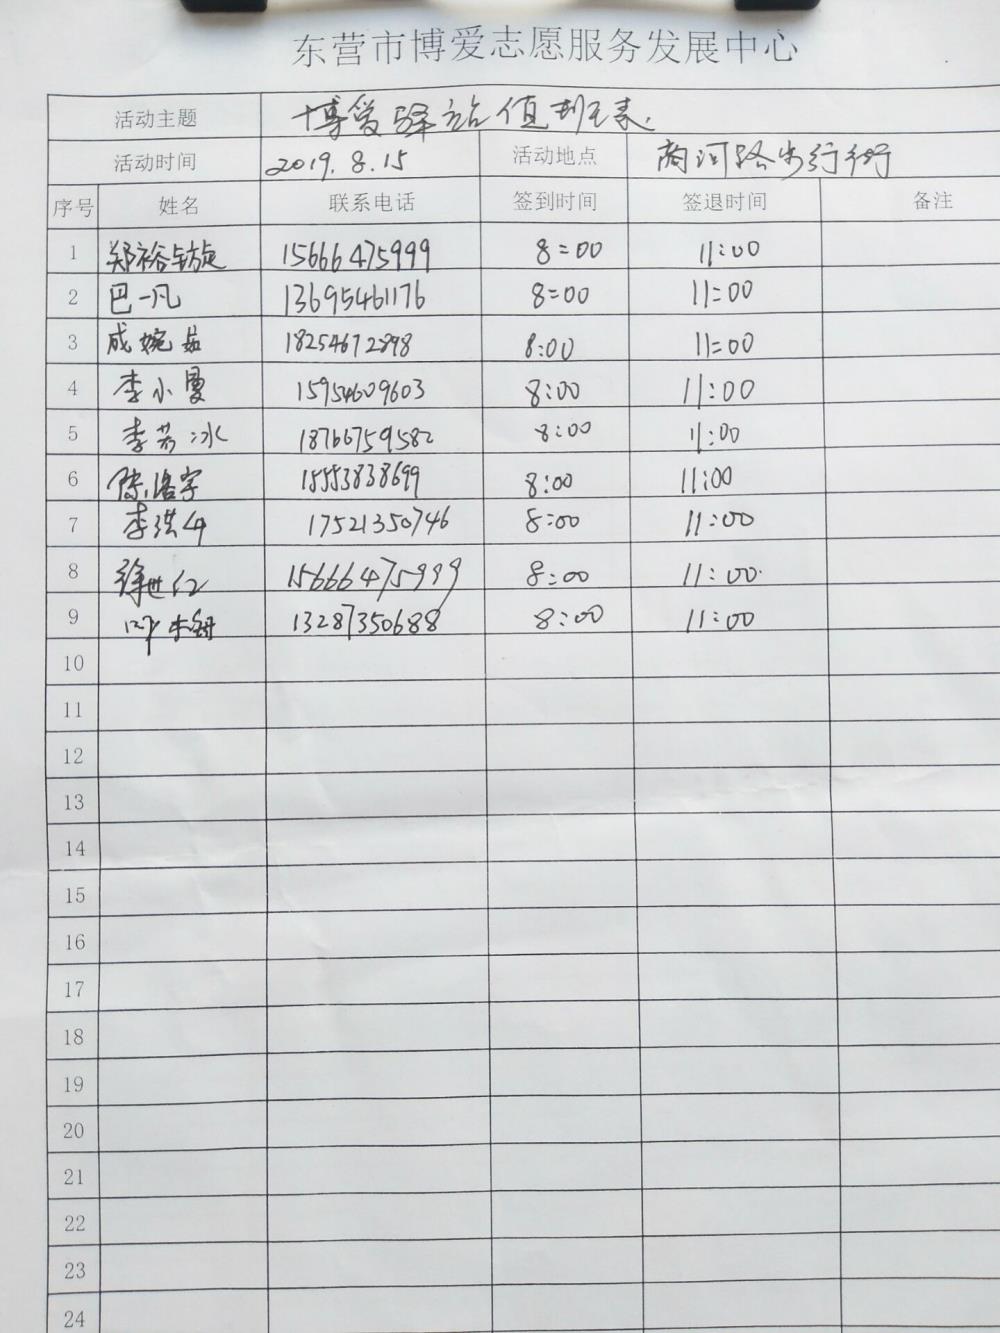 东营市博爱志愿服务发展中心
活动主题 博爱驿站值班表.
活动时间 2019.8.15 活动地点 商河路步行街
序号 姓名 联系电话 签到时间 签退时间 备注
1 郑裕钫旋 15666475999 8:00 11:00
2 巴一凡 13695461176 8:00 11:00
3 成婉茹 18254672898 8:00 11:00
4 李小曼 15954609603 8:00 11:00
5 李芳冰 18766759582 8:00 11:00
6 陈洛宇 15553838699 8:00 11:00
7 李洪 17521350746 8:00 11:00
8 徐世仁 15666475999 8:00 11:00.
9 13287350688 8:00 11:00
10
11
12
13
14
15
16
17
18
19
20
21
22
23
24